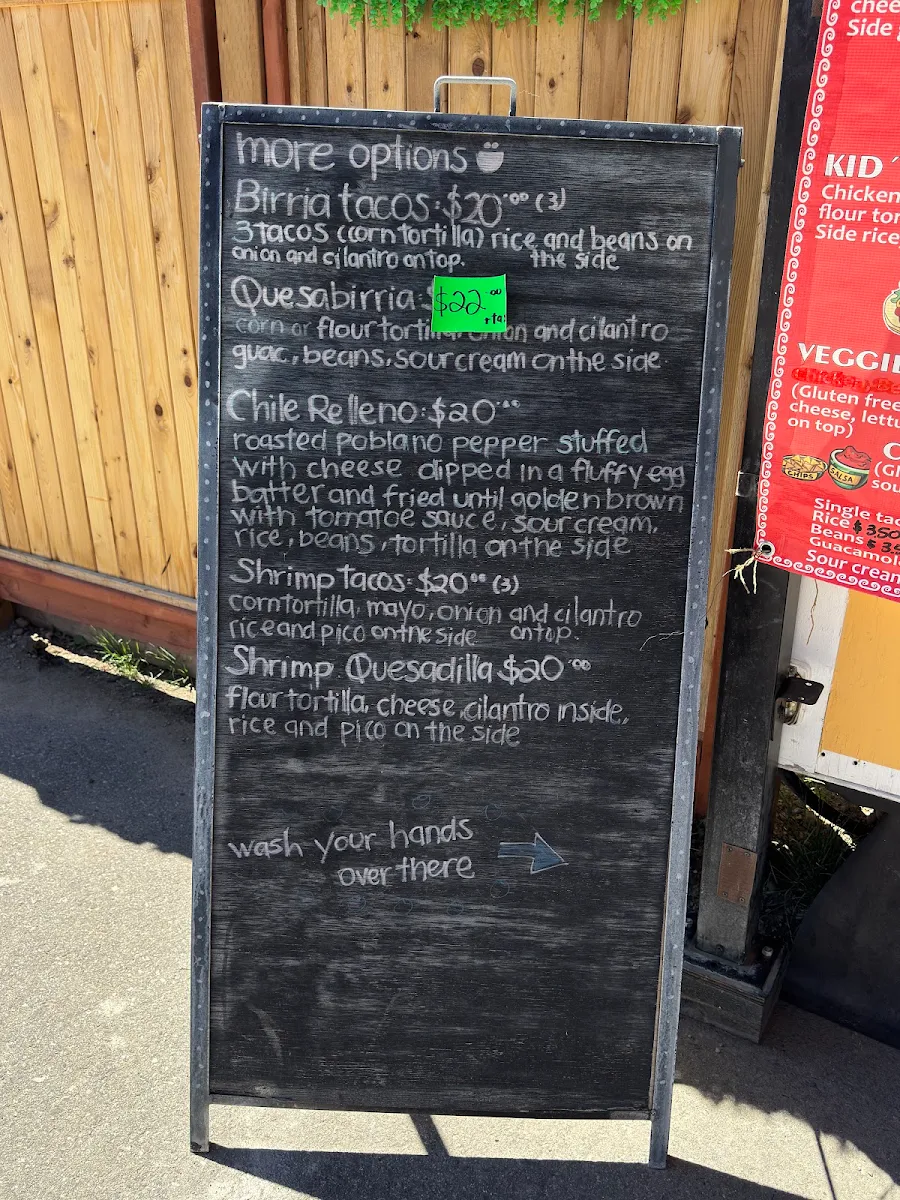 more options
Birria tacos: $20.00 (3)
3 tacos (corn tortilla) rice and beans on
onion and cilantro on top. the side
Quesabirria: $22.00
corn or flour tortilla, onion and cilantro
guac, beans, sour cream on the side
Chile Relleno: $20.00
roasted poblano pepper stuffed
with cheese dipped in a fluffy egg
batter and fried until golden brown
with tomatoe sauce, sour cream,
rice, beans, tortilla on the side
Shrimp tacos: $20.00 (3)
corn tortilla, mayo, onion and cilantro
rice and pico on the side on top.
Shrimp Quesadilla $20.00
flour tortilla, cheese, cilantro inside,
rice and pico on the side
wash your hands
over there
Side
KID
Chicken
flour
Side rice
VEGGIE
(Gluten free
cheese,
on top)
CHIPS
SALSA
Single
Rice $3.50
Beans
Sour cream